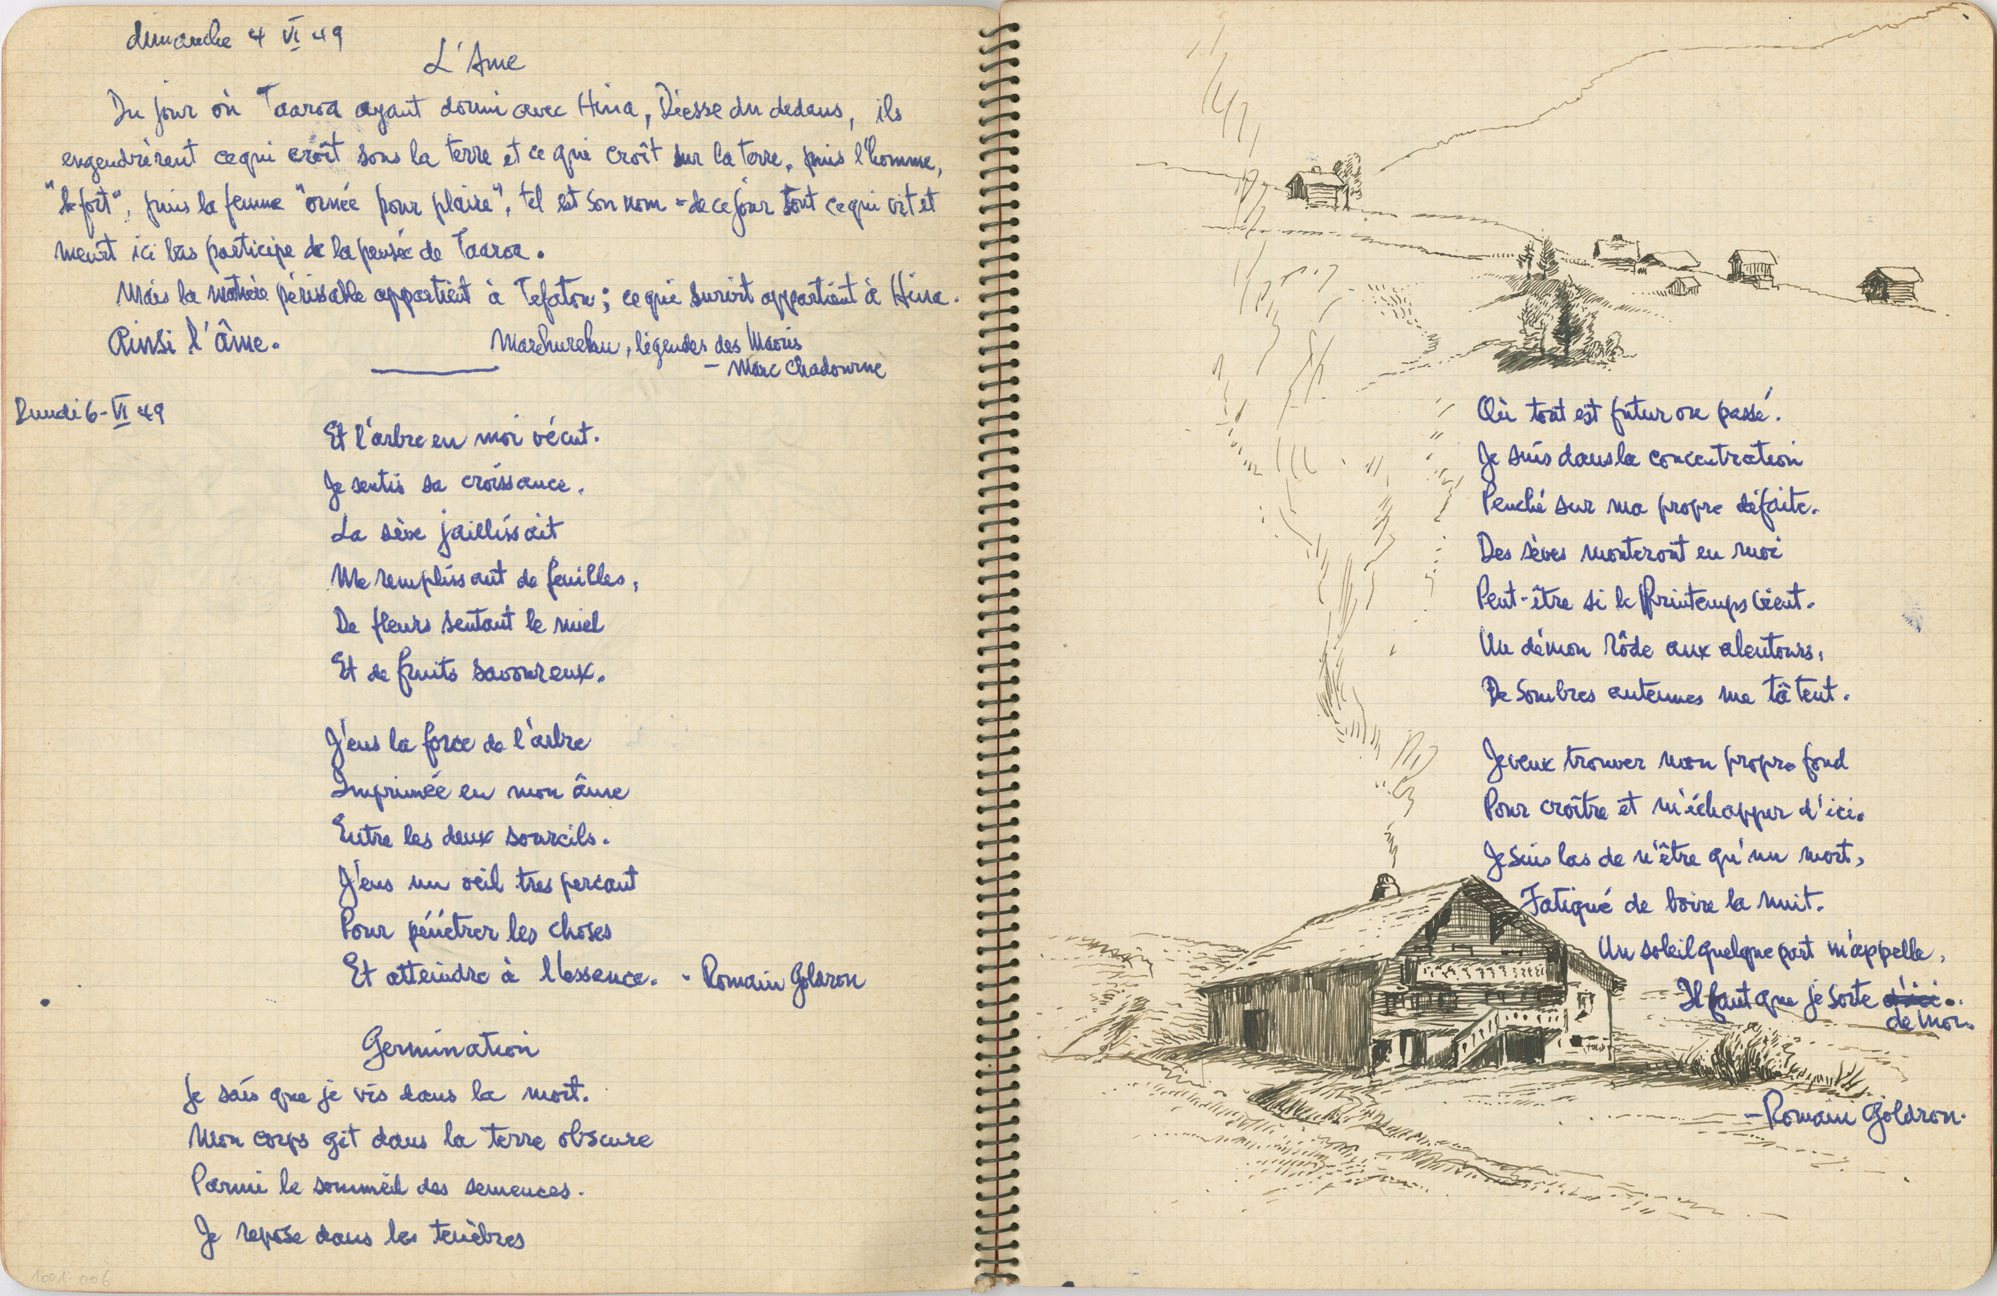 dimanche 4 VI 49
L'Ame
Du jour où Taaroa ayant dormi avec Hina, Déesse du dedans, ils
engendrèrent ce qui croît sous la terre et ce qui croît sur la terre, puis l'homme,
"le fort", puis la femme "ornée pour plaire", tel est son nom - de ce jour tout ce qui vit et
meurt ici bas participe de la pensée de Taaroa.
Mais la matière périssable appartient à Tefatou ; ce qui survit appartient à Hina.
Ainsi l'âme.
Marehurehu, légendes des Maoris
- Marc Chadourne
Lundi 6 - VI 49
Et l'arbre en moi vécut.
Je sentis sa croissance.
La sève jaillissait
Me remplissant de feuilles,
De fleurs sentant le miel
Et de fruits savoureux.
J'eus la force de l'arbre
Imprimée en mon âme
Entre les deux sourcils.
J'eus un oeil tres percant
Pour pénétrer les choses
Et atteindre à l'essence. - Romain Goldron
Germination
Je sais que je vis dans la mort.
Mon corps gît dans la terre obscure
Parmi le sommeil des semences.
Je repose dans les tenèbres
1001-006
Où tout est futur ou passé.
Je suis dans la concentration
Penché sur ma propre défaite.
Des sèves monteront en moi
Peut-être si le Printemps vient.
Un démon rôde aux alentours,
De sombres antennes me tâtent.
Je veux trouver mon propre fond
Pour croître et m'échapper d'ici.
Je suis las de n'être qu'un mort,
Fatigué de boire la nuit.
Un soleil quelque part m'appelle,
Il faut que je sorte d'ici.
de moi.
- Romain Goldron.